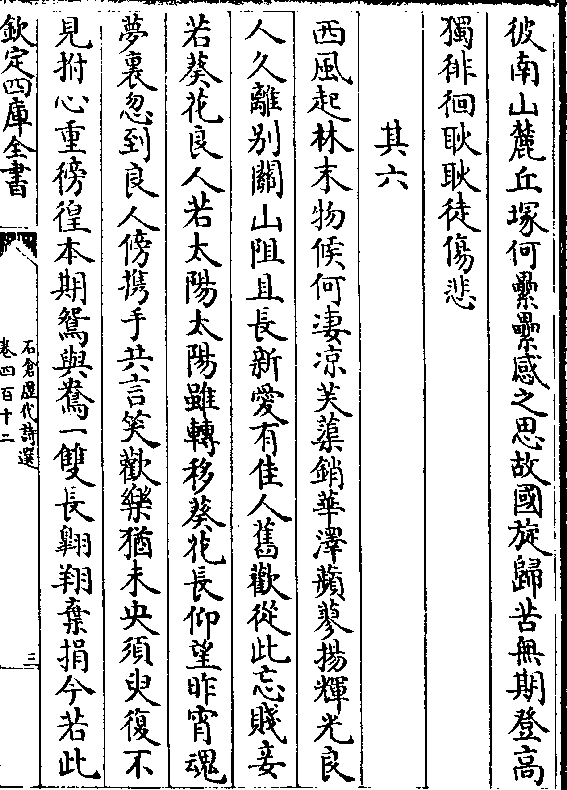 彼南山麓丘塚何纍纍感之思故國旋歸苦無期登高
獨徘徊耿耿徒傷悲
其六
西風起林末物候何凄凉芙蕖銷華澤蘋蓼揚輝光良
人久離别關山阻且長新愛有佳人舊歡從此忘賤妾
若葵花良人若太陽太陽雖轉移葵花長仰望昨宵魂
夢裏忽到良人傍携手共言笑歡樂猶未央須臾復不
見拊心重徬徨本期鴛與鴦一雙長翺翔棄捐今若此
欽定四庫全書
石倉歷代詩選
卷四百十二
三